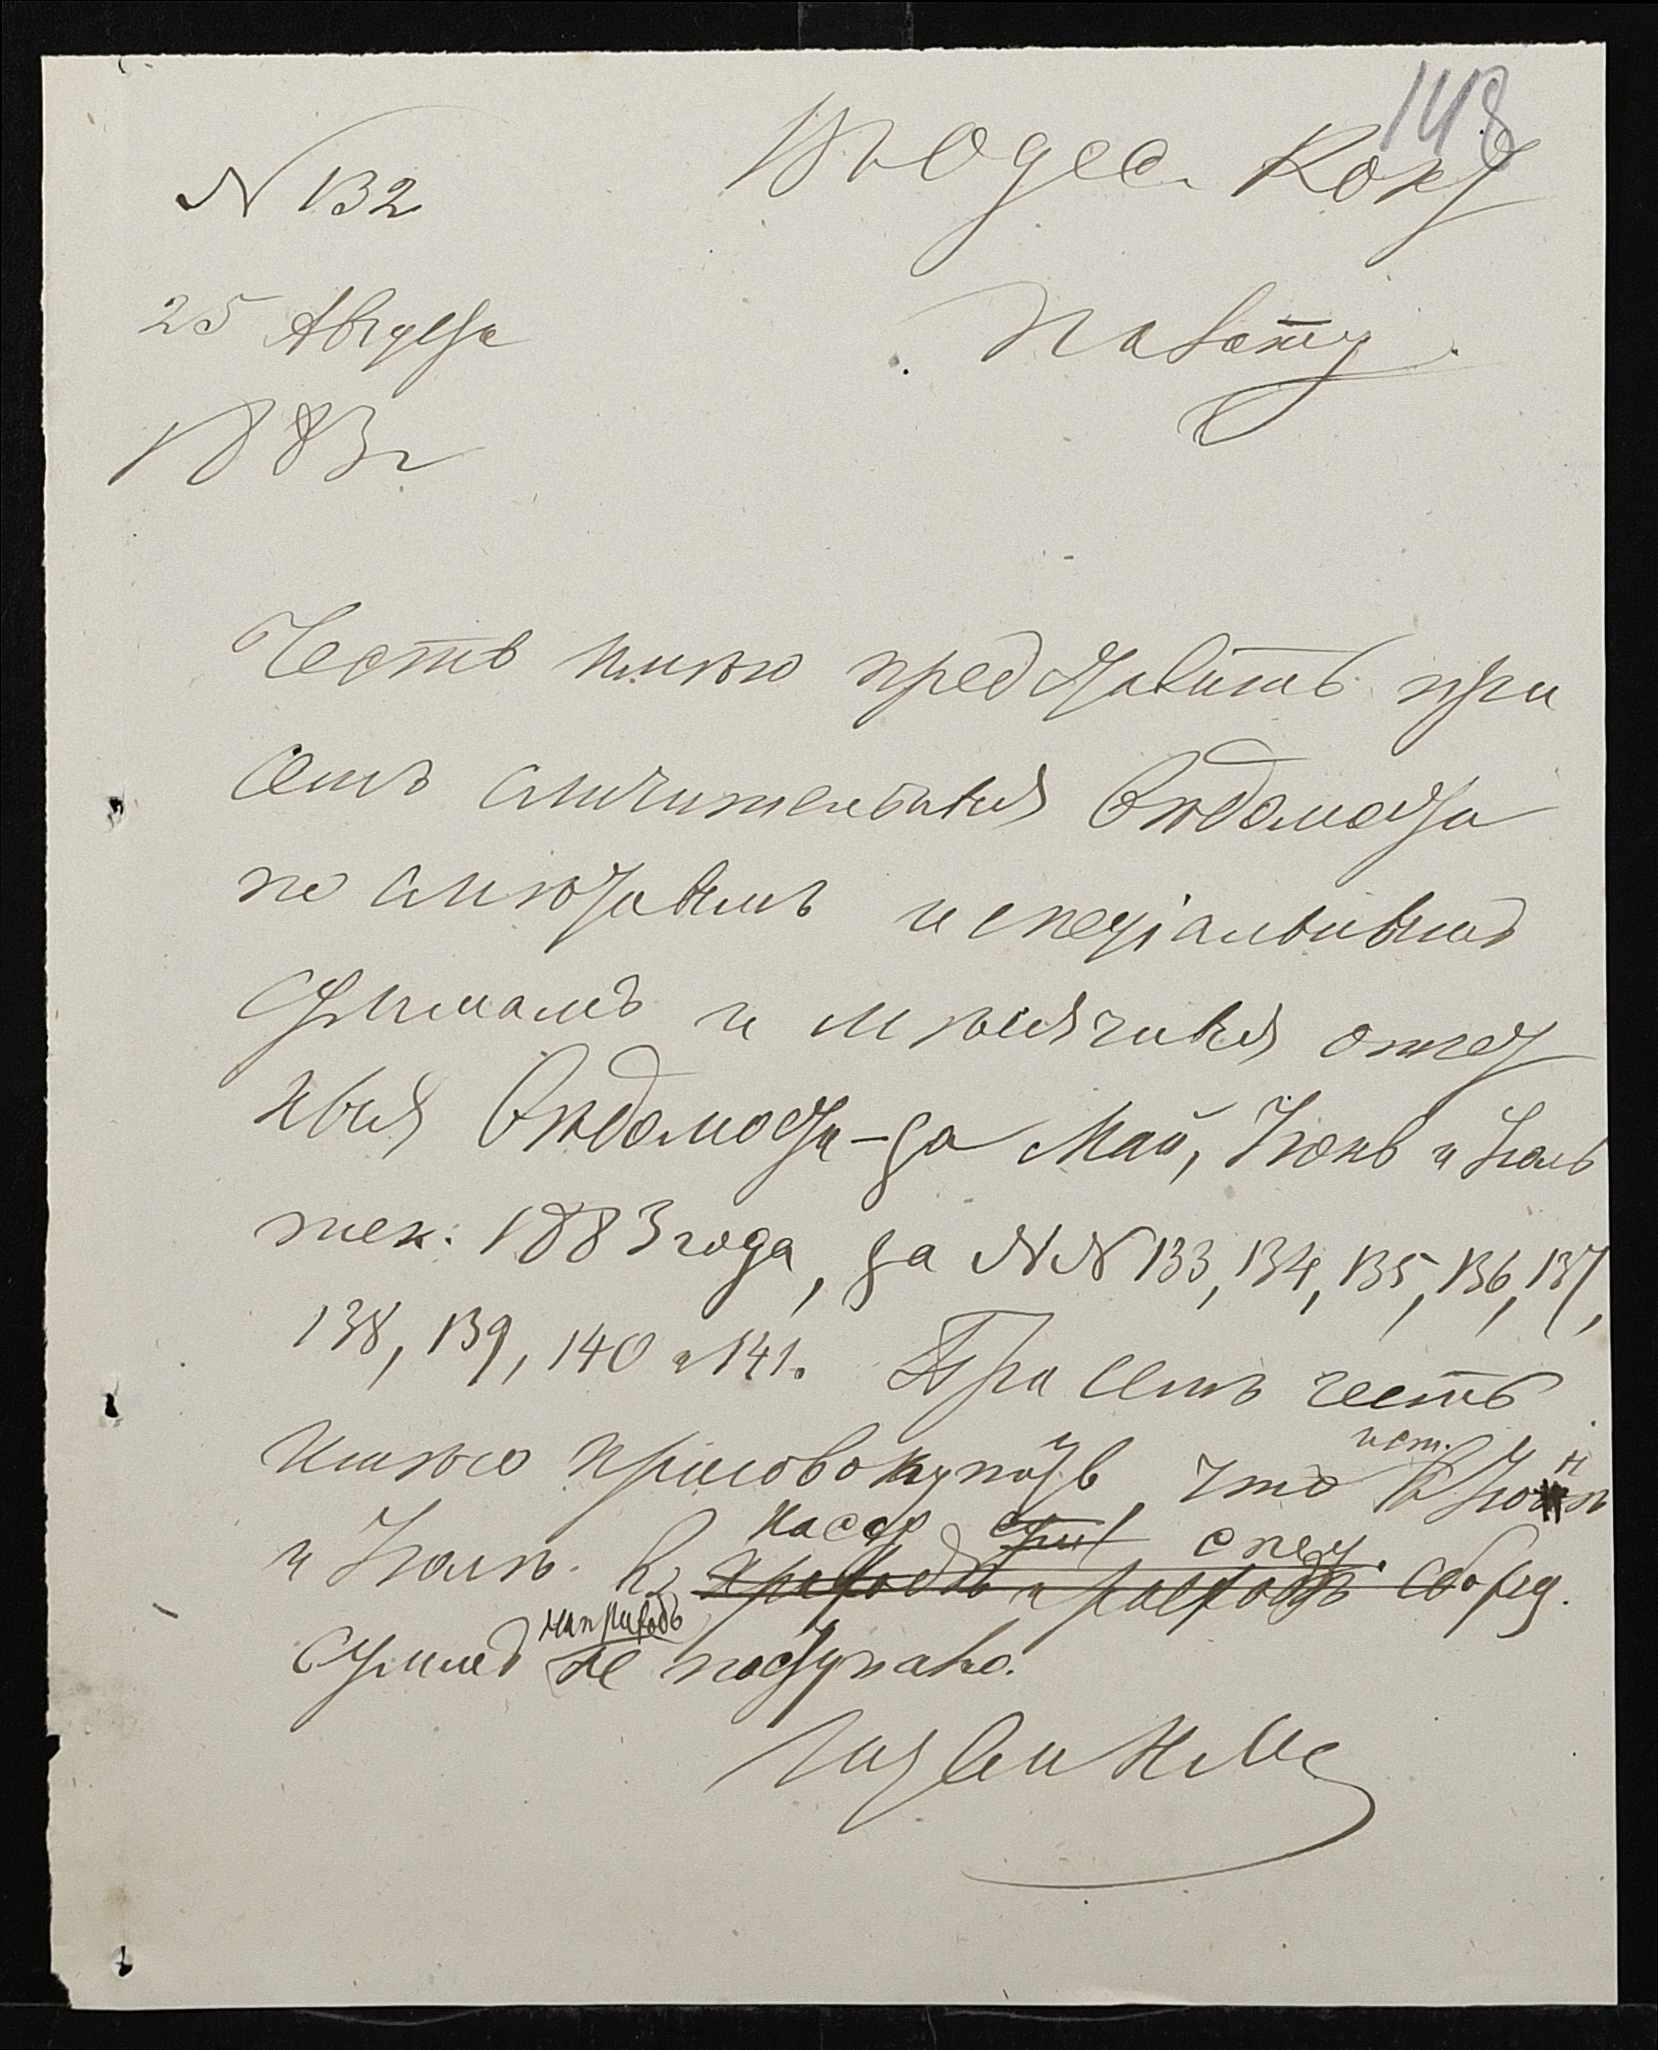 148
№ 132
Въ Одес. Конт
25 Августа
Палату.
1883 г
Честь имѣю представить при
семъ сличительныя Вѣдомости
по смѣтнымъ и спеціальнымъ
суммамъ и мѣсячныя отчет
ныя Вѣдомости - за Май, Іюнь и Іюль
тек: 1883 года, за №№ 133, 134, 135, 136, 137,
138, 139, 140 и 141. При семъ честь
имѣю присовокупить, что въ Іюнѣ
и Іюлѣ. въ приходѣ и расходѣ
спец. сборед.
на приходъ
суммъ не поступало.